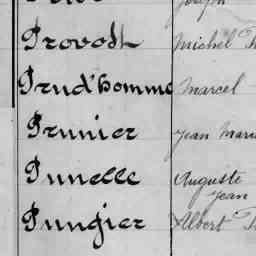 Joseph
Provost Michel
Prud'homme Marcel
Prunier Jean Marie
Punelle Auguste
Jean
Pungier Albert